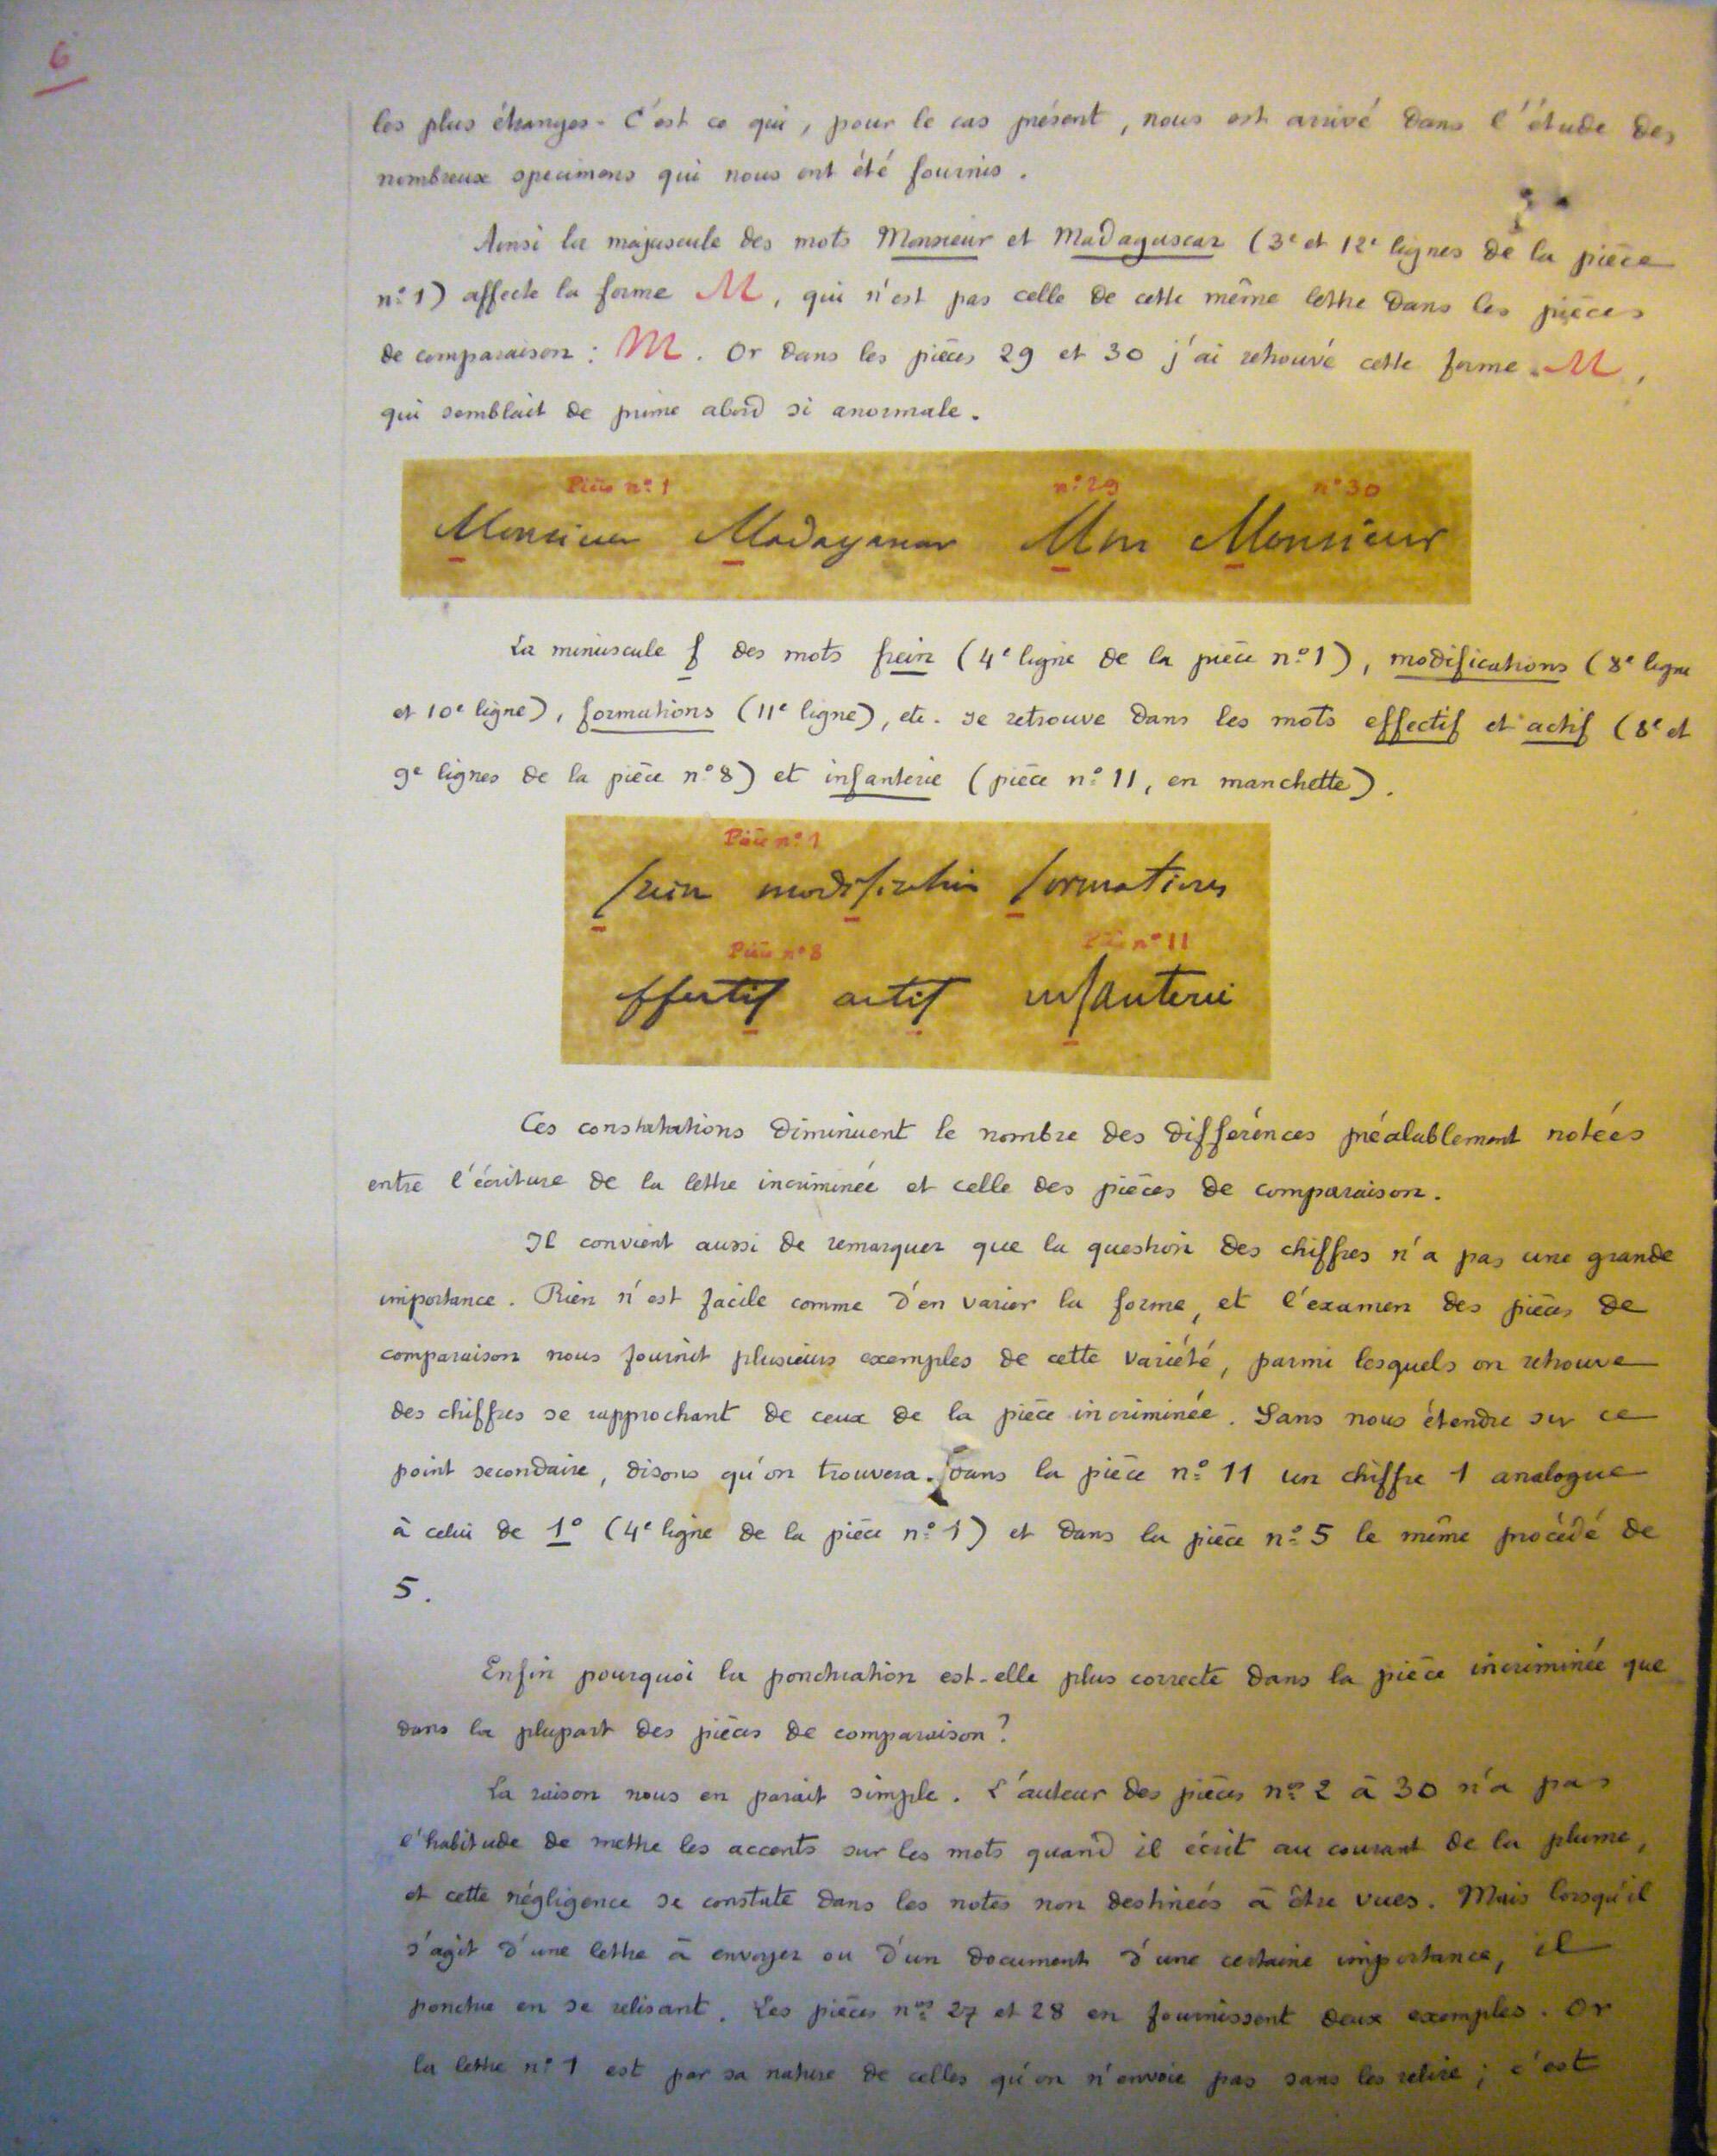 6
les plus étranges. C'est ce qui, pour le cas présent, nous est arrivé dans l'étude des
nombreux specimens qui nous ont été fournis.
Ainsi la majuscule des mots Monsieur et Madagascar (3e et 12e lignes de la pièce
n° 1) affecte la forme M, qui n'est pas celle de cette même lettre dans les pièces
de comparaison : M. Or dans les pièces 29 et 30 j'ai retrouvé cette forme M,
qui semblait de prime abord si anormale.
Pièce n° 1 n° 29 n° 30
Monsieur Madagascar Mon Monsieur
La minuscule f des mots frein (4e ligne de la pièce n° 1), modifications (8e ligne
et 10e ligne), formations (11e ligne), etc. se retrouve dans les mots effectif et actif (8e et
9e lignes de la pièce n° 8) et infanterie (pièce n° 11, en manchette).
Pièce n° 1
frein modification formations
Pièce n° 8 Pièce n° 11
effectif actif infanterie
Ces constatations diminuent le nombre des différences préalablement notées
entre l'écriture de la lettre incriminée et celle des pièces de comparaison.
Il convient aussi de remarquer que la question des chiffres n'a pas une grande
importance. Rien n'est facile comme d'en varier la forme, et l'examen des pièces de
comparaison nous fournit plusieurs exemples de cette variété, parmi lesquels on retrouve
des chiffres se rapprochant de ceux de la pièce incriminée. Sans nous étendre sur ce
point secondaire, disons qu'on trouvera dans la pièce n° 11 un chiffre 1 analogue
à celui de 1° (4e ligne de la pièce n° 1) et dans la pièce n° 5 le même procédé de
5.
Enfin pourquoi la ponctuation est-elle plus correcte dans la pièce incriminée que
dans la plupart des pièces de comparaison ?
La raison nous en parait simple. L'auteur des pièces nos 2 à 30 n'a pas
l'habitude de mettre les accents sur les mots quand il écrit au courant de la plume,
et cette négligence se constate dans les notes non destinées à être vues. Mais lorsqu'il
s'agit d'une lettre à envoyer ou d'un document d'une certaine importance, il
ponctue en se relisant. Les pièces nos 27 et 28 en fournissent deux exemples. Or
la lettre n° 1 est par sa nature de celles qu'on n'envoie pas sans les relire ; c'est